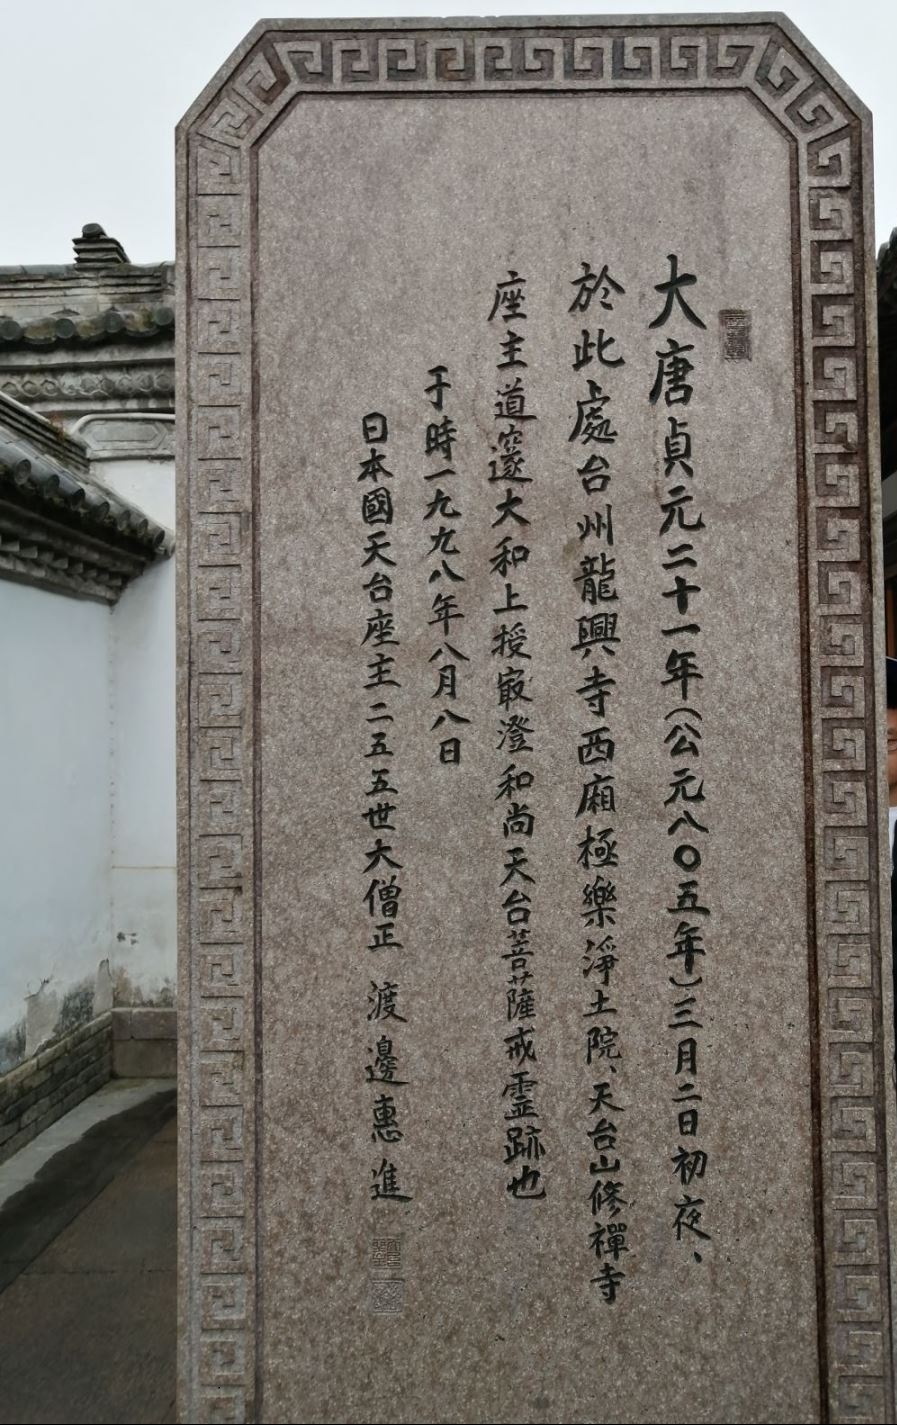 大唐貞元二十一年（公元八〇五年）三月二日初夜、
於此處台州龍興寺西廂極樂淨土院、天台山修禪寺
座主道邃大和上授㝡澄和尚天台菩薩戒霊跡也
于時一九九八年八月八日
日本國天台座主二五五世大僧正 渡邊惠進